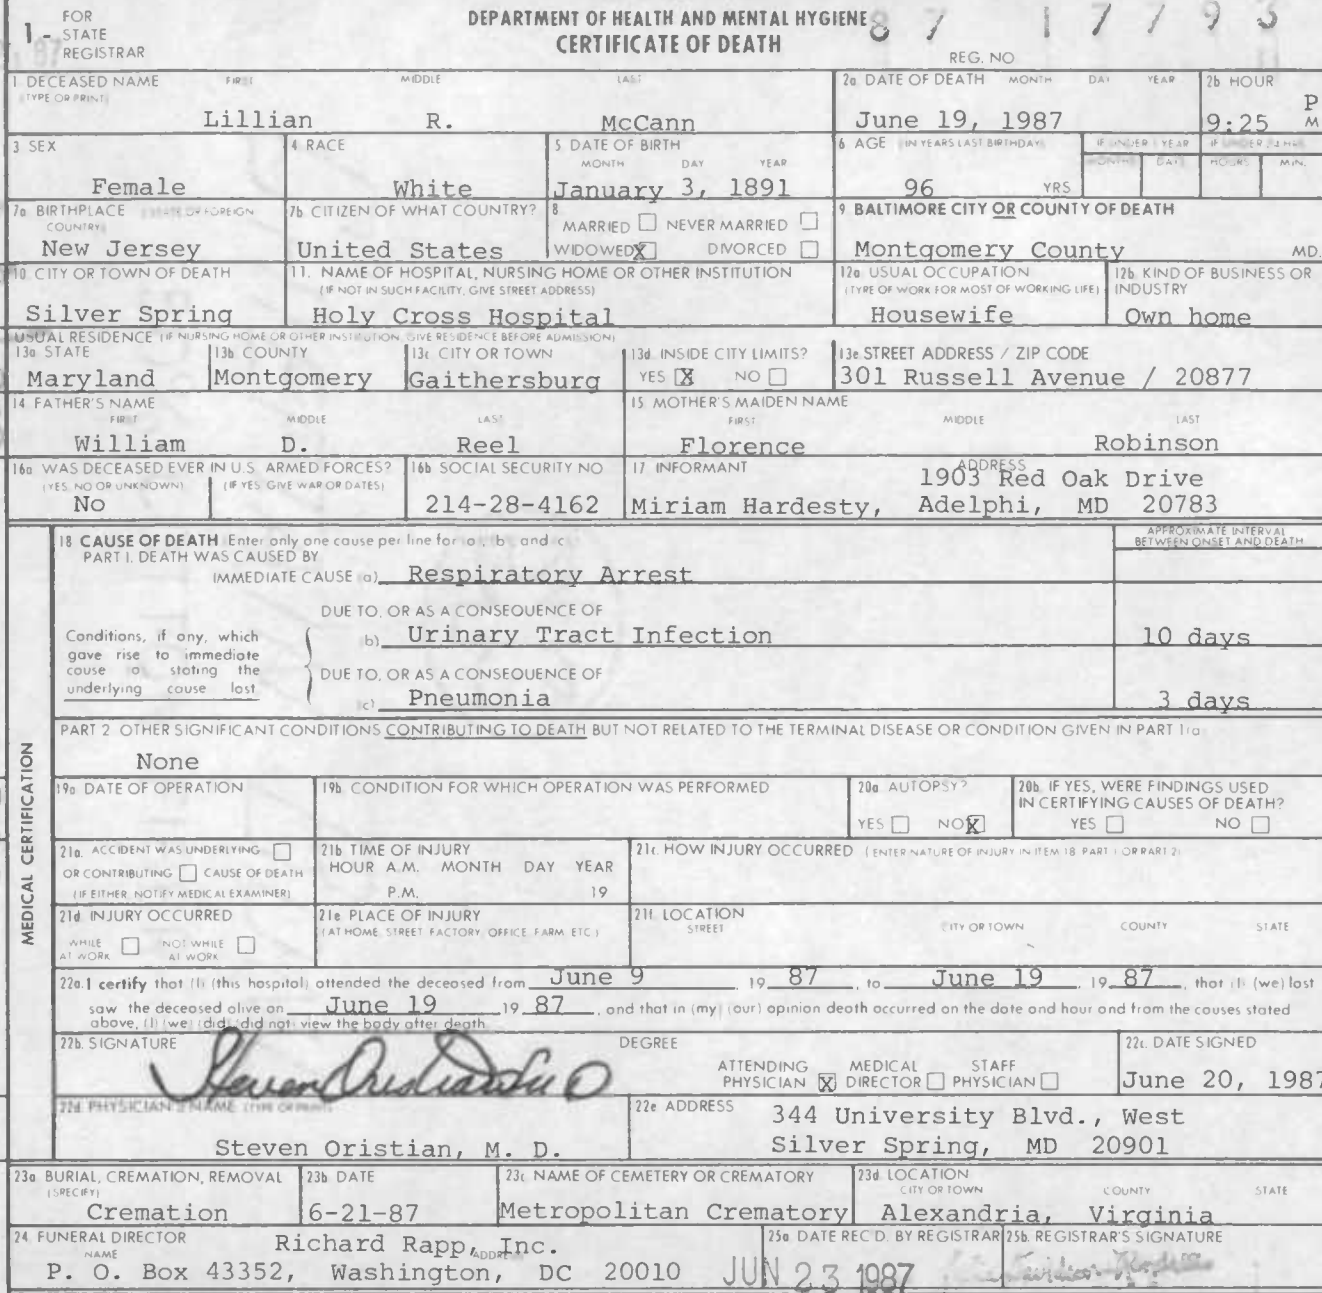 1 - FOR STATE REGISTRAR
DEPARTMENT OF HEALTH AND MENTAL HYGIENE
CERTIFICATE OF DEATH
87 17793
REG. NO
1 DECEASED NAME FIRST MIDDLE LAST
(TYPE OR PRINT)
Lillian R. McCann
2a DATE OF DEATH MONTH DAY YEAR
June 19, 1987
2b HOUR
9:25 P M
3 SEX
Female
4 RACE
White
5 DATE OF BIRTH
MONTH DAY YEAR
January 3, 1891
6 AGE (IN YEARS LAST BIRTHDAY)
96 YRS
IF UNDER 1 YEAR
MONTHS DAYS
IF UNDER 24 HRS
HOURS MIN.
7a BIRTHPLACE (STATE OR FOREIGN
COUNTRY)
New Jersey
7b CITIZEN OF WHAT COUNTRY?
United States
8
MARRIED NEVER MARRIED
WIDOWED X DIVORCED
9 BALTIMORE CITY OR COUNTY OF DEATH
Montgomery County MD.
10 CITY OR TOWN OF DEATH
Silver Spring
11. NAME OF HOSPITAL, NURSING HOME OR OTHER INSTITUTION
(IF NOT IN SUCH FACILITY, GIVE STREET ADDRESS)
Holy Cross Hospital
12a USUAL OCCUPATION
(TYPE OF WORK FOR MOST OF WORKING LIFE)
Housewife
12b KIND OF BUSINESS OR
INDUSTRY
Own home
USUAL RESIDENCE (IF NURSING HOME OR OTHER INSTITUTION, GIVE RESIDENCE BEFORE ADMISSION)
13a STATE
Maryland
13b COUNTY
Montgomery
13c CITY OR TOWN
Gaithersburg
13d INSIDE CITY LIMITS?
YES X NO
13e STREET ADDRESS / ZIP CODE
301 Russell Avenue / 20877
14 FATHER'S NAME
FIRST MIDDLE LAST
William D. Reel
15 MOTHER'S MAIDEN NAME
FIRST MIDDLE LAST
Florence Robinson
16a WAS DECEASED EVER IN U.S. ARMED FORCES?
(YES, NO OR UNKNOWN) (IF YES, GIVE WAR OR DATES)
No
16b SOCIAL SECURITY NO
214-28-4162
17 INFORMANT ADDRESS
1903 Red Oak Drive
Miriam Hardesty, Adelphi, MD 20783
MEDICAL CERTIFICATION
18 CAUSE OF DEATH (Enter only one cause per line for (a), (b), and (c)
APPROXIMATE INTERVAL
BETWEEN ONSET AND DEATH
PART I. DEATH WAS CAUSED BY
IMMEDIATE CAUSE (a) Respiratory Arrest
DUE TO, OR AS A CONSEQUENCE OF
Conditions, if any, which
gave rise to immediate
cause (a) stating the
underlying cause last
b) Urinary Tract Infection 10 days
DUE TO, OR AS A CONSEQUENCE OF
(c) Pneumonia 3 days
PART 2 OTHER SIGNIFICANT CONDITIONS CONTRIBUTING TO DEATH BUT NOT RELATED TO THE TERMINAL DISEASE OR CONDITION GIVEN IN PART 1(a)
None
19a DATE OF OPERATION
19b. CONDITION FOR WHICH OPERATION WAS PERFORMED
20a AUTOPSY?
YES NO X
20b. IF YES, WERE FINDINGS USED
IN CERTIFYING CAUSES OF DEATH?
YES NO
21a. ACCIDENT WAS UNDERLYING
OR CONTRIBUTING CAUSE OF DEATH
(IF EITHER, NOTIFY MEDICAL EXAMINER)
21b TIME OF INJURY
HOUR A.M. MONTH DAY YEAR
P.M. 19
21c. HOW INJURY OCCURRED (ENTER NATURE OF INJURY IN ITEM 18 PART 1 OR PART 2)
21d INJURY OCCURRED
WHILE AT WORK NOT WHILE AT WORK
21e PLACE OF INJURY
(AT HOME, STREET, FACTORY, OFFICE, FARM, ETC.)
21f LOCATION
STREET CITY OR TOWN COUNTY STATE
22a. I certify that (I) (this hospital) attended the deceased from June 9 19 87, to June 19, 19 87, that (I) (we) last
saw the deceased alive on June 19 19 87, and that in (my) (our) opinion death occurred on the date and hour and from the causes stated
above, (I) (we) (did) (did not) view the body after death
22b. SIGNATURE
Steven Oristian MD
DEGREE
ATTENDING PHYSICIAN X MEDICAL DIRECTOR STAFF PHYSICIAN
22c. DATE SIGNED
June 20, 1987
22d. PHYSICIAN'S NAME (TYPE OR PRINT)
Steven Oristian, M. D.
22e ADDRESS
344 University Blvd., West
Silver Spring, MD 20901
23a BURIAL, CREMATION, REMOVAL
(SPECIFY)
Cremation
23b DATE
6-21-87
23c NAME OF CEMETERY OR CREMATORY
Metropolitan Crematory
23d LOCATION
CITY OR TOWN COUNTY STATE
Alexandria, Virginia
24 FUNERAL DIRECTOR
NAME ADDRESS
Richard Rapp, Inc.
P. O. Box 43352, Washington, DC 20010
25a DATE REC'D. BY REGISTRAR
JUN 23 1987
25b. REGISTRAR'S SIGNATURE